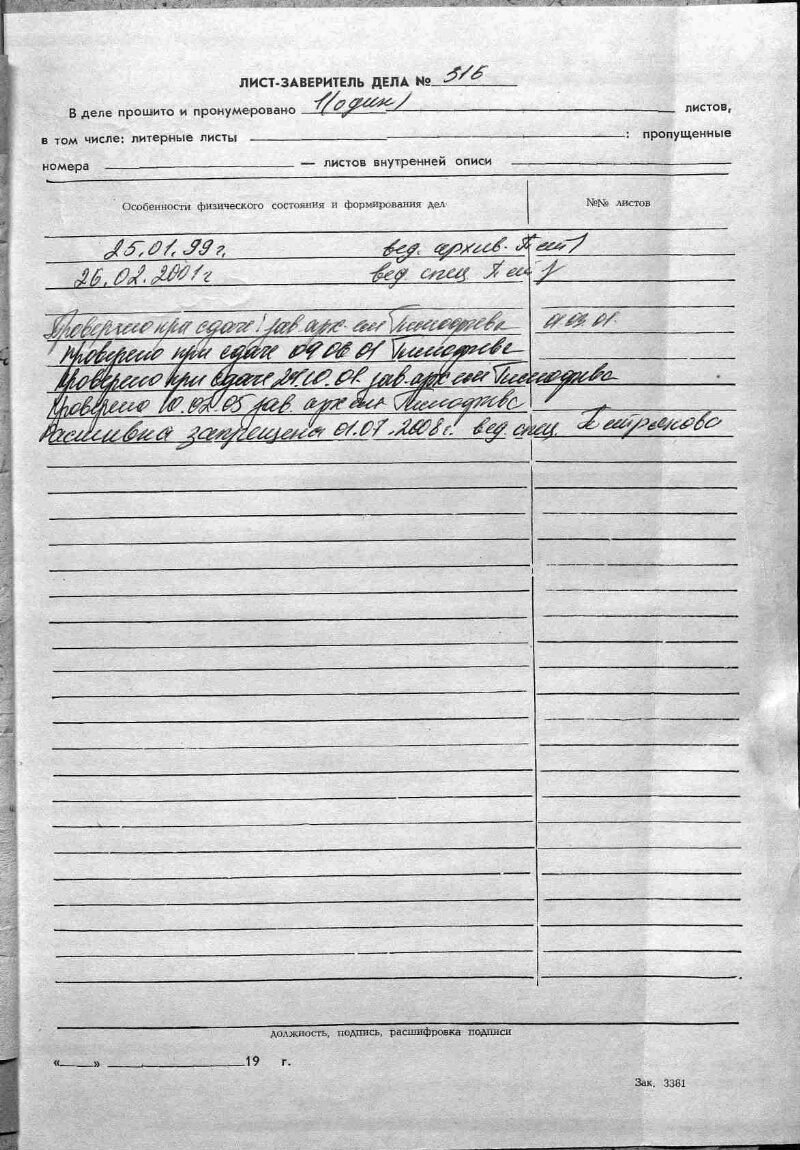 ЛИСТ-ЗАВЕРИТЕЛЬ ДЕЛА № 316
В деле прошито и пронумеровано 1(один) листов,
в том числе: литерные листы : пропущенные
номера — листов внутренней описи
Особенности физического состояния и формирования дел №№ листов
25.01.99г. вед. архив.
26.02.2001г вед. спец.
Проверено при сдаче зав. арх Тимофеева 01.03.01.
Проверено при сдаче 09 08 01 Тимофеева
Проверено при сдаче 24.10.01. зав. арх Тимофеева
Проверено 10.02.05 зав. арх Тимофеева
Расшивка запрещена 01.07.2008г. вед. спец. Петрякова
должность, подпись, расшифровка подписи
« » 19 г.
Зак. 3381